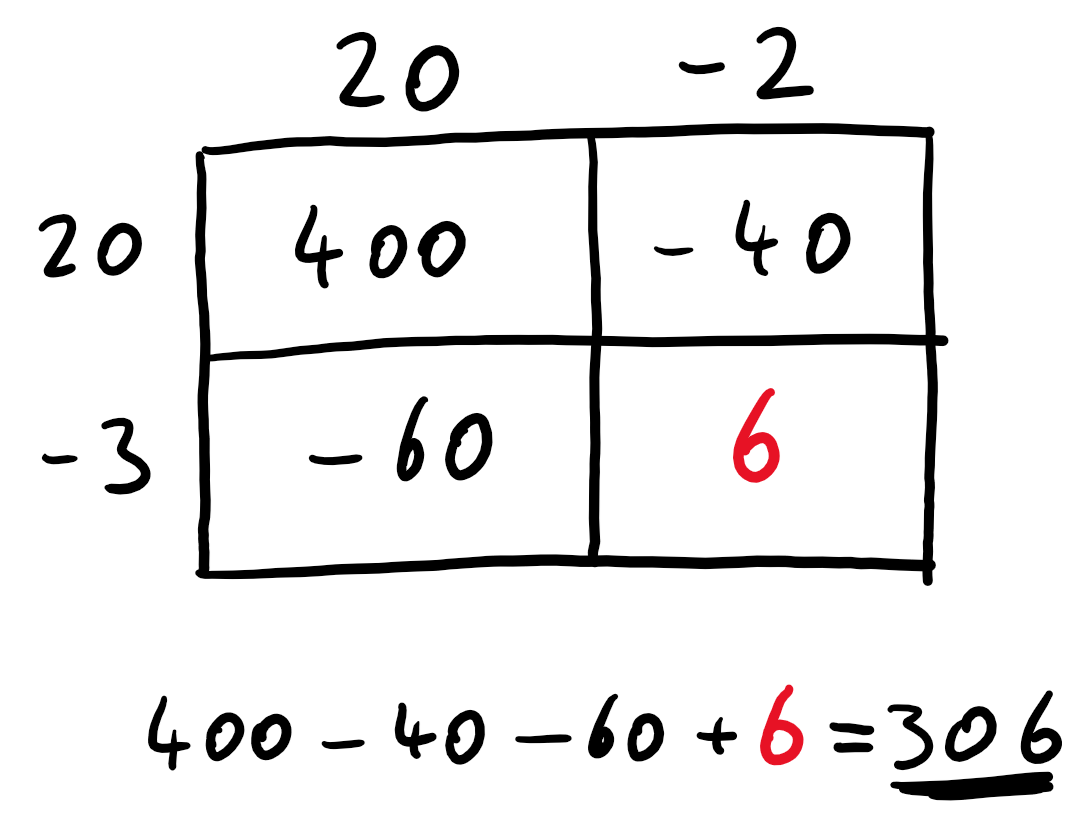 20 -2
20 400 -40
-3 -60 6
400 - 40 - 60 + 6 = 306